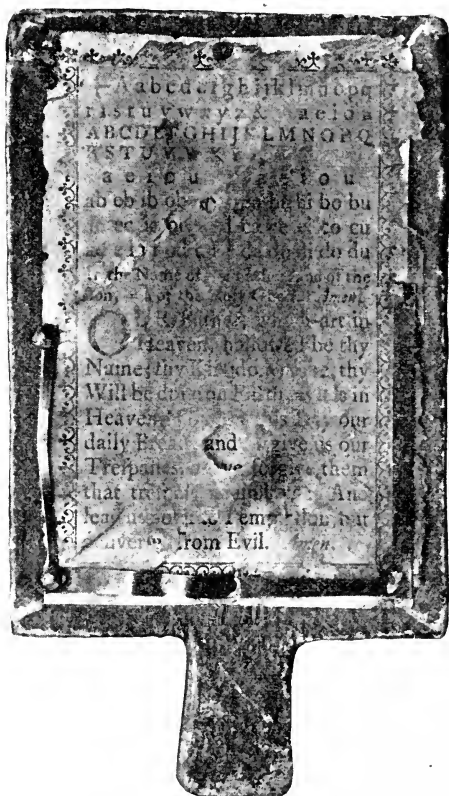 Aabcdefghijklmnopq
rſstuvwxyz& aeiou
ABCDEFGHIJKLMNOPQ
RSTUVW
a e i o u a e i o u
ab eb ib ob ba be bi bo bu
ca ce ci co cu
da de di do du
In the Name of the and of the
Son, and of the Holy Ghoſt. Amen.
OUR Father, which art in
Heaven, hallowed be thy
Name; thy Kingdom come, thy
Will be done on Earth, as it is in
Heaven. Give us this Day our
daily Bread; and forgive us our
Treſpaſſes, as we forgive them
that treſpaſs againſt us: And
lead us not into Temptation, but
deliver us from Evil. Amen.